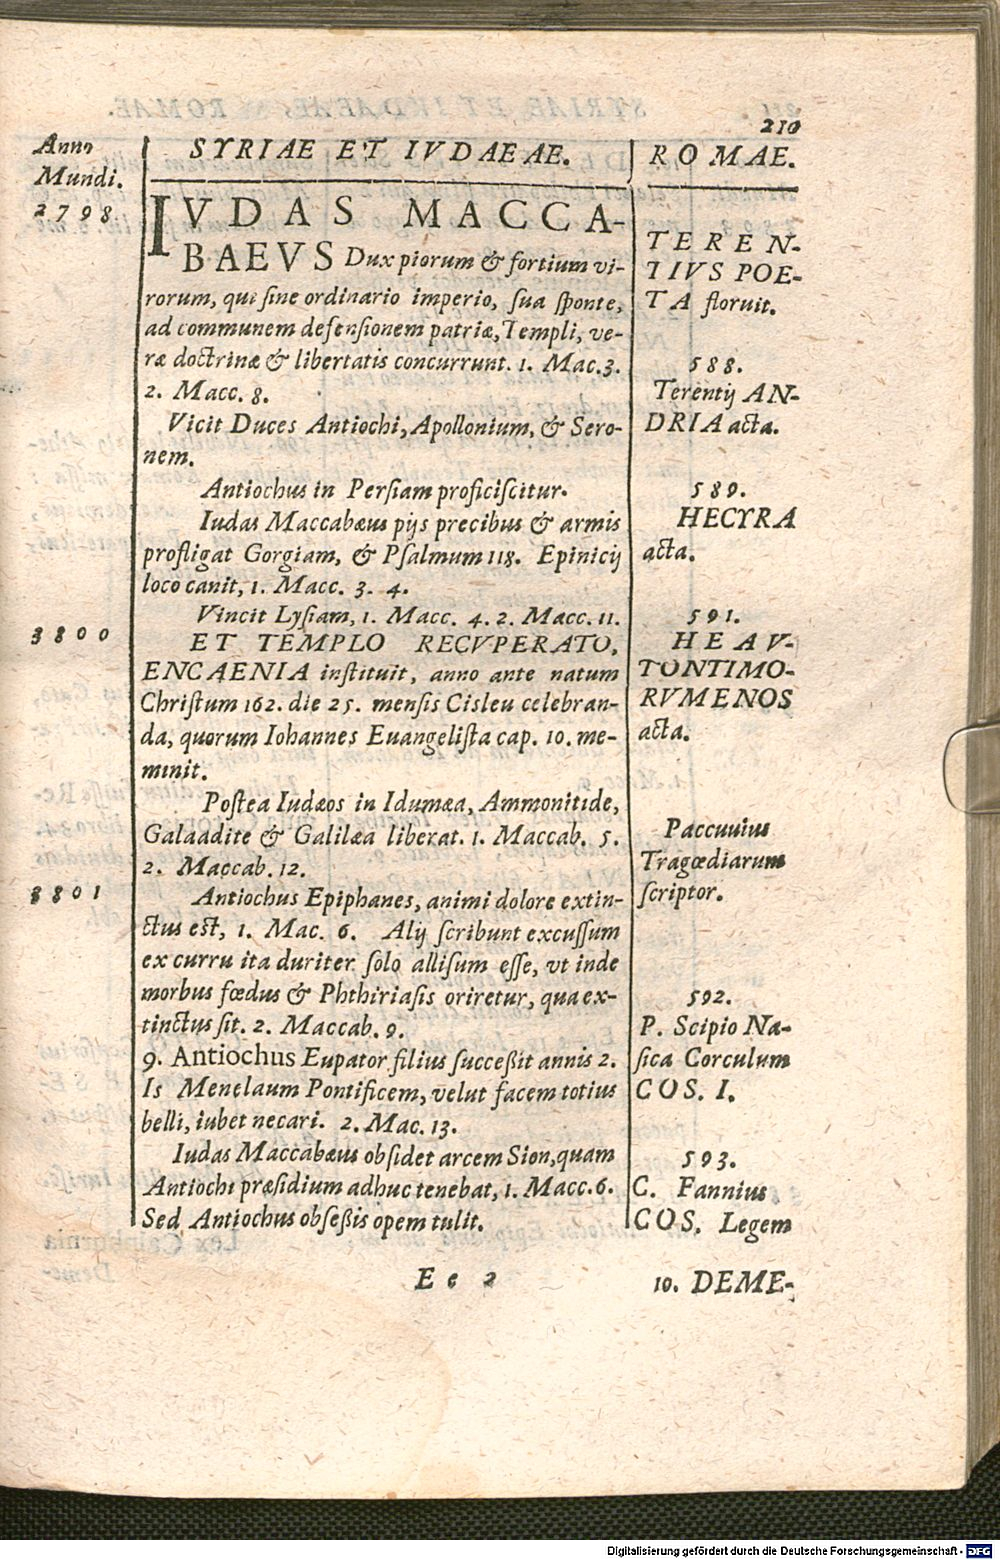 210
Anno
Mundi.
2798
SYRIAE ET IVDAEAE.
IVDAS MACCA-
BAEVS Dux piorum & fortium vi-
rorum, qui sine ordinario imperio, sua sponte,
ad communem defensionem patriæ, Templi, ve-
ræ doctrinæ & libertatis concurrunt. 1. Mac. 3.
2. Macc. 8.
Vicit Duces Antiochi, Apollonium, & Sero-
nem.
Antiochus in Persiam proficiscitur.
Iudas Maccabæus pijs precibus & armis
profligat Gorgiam, & Psalmum 118. Epinicij
loco canit, 1. Macc. 3. 4.
Vincit Lysiam, 1. Macc. 4. 2. Macc. 11.
3800
ET TEMPLO RECVPERATO,
ENCAENIA instituit, anno ante natum
Christum 162. die 25. mensis Cisleu celebran-
da, quorum Iohannes Euangelista cap. 10. me-
minit.
Postea Iudæos in Idumæa, Ammonitide,
Galaadite & Galilæa liberat. 1. Maccab. 5.
2. Maccab. 12.
3801
Antiochus Epiphanes, animi dolore extin-
ctus est, 1. Mac. 6. Alij scribunt excussum
ex curru ita duriter solo allisum esse, vt inde
morbus fœdus & Phthiriasis oriretur, qua ex-
tinctus sit. 2. Maccab. 9.
9. Antiochus Eupator filius successit annis 2.
Is Menelaum Pontificem, velut facem totius
belli, iubet necari. 2. Mac. 13.
Iudas Maccabæus obsidet arcem Sion, quam
Antiochi præsidium adhuc tenebat, 1. Macc. 6.
Sed Antiochus obsessis opem tulit.
ROMAE.
TEREN-
TIVS POE-
TA floruit.
588.
Terentij AN-
DRIA acta.
589.
HECYRA
acta.
591.
HEAV-
TONTIMO-
RVMENOS
acta.
Paccuuius
Tragœdiarum
scriptor.
592.
P. Scipio Na-
sica Corculum
COS. I.
593.
C. Fannius
COS. Legem
Ee 2
10. DEME-
Digitalisierung gefördert durch die Deutsche Forschungsgemeinschaft - DFG